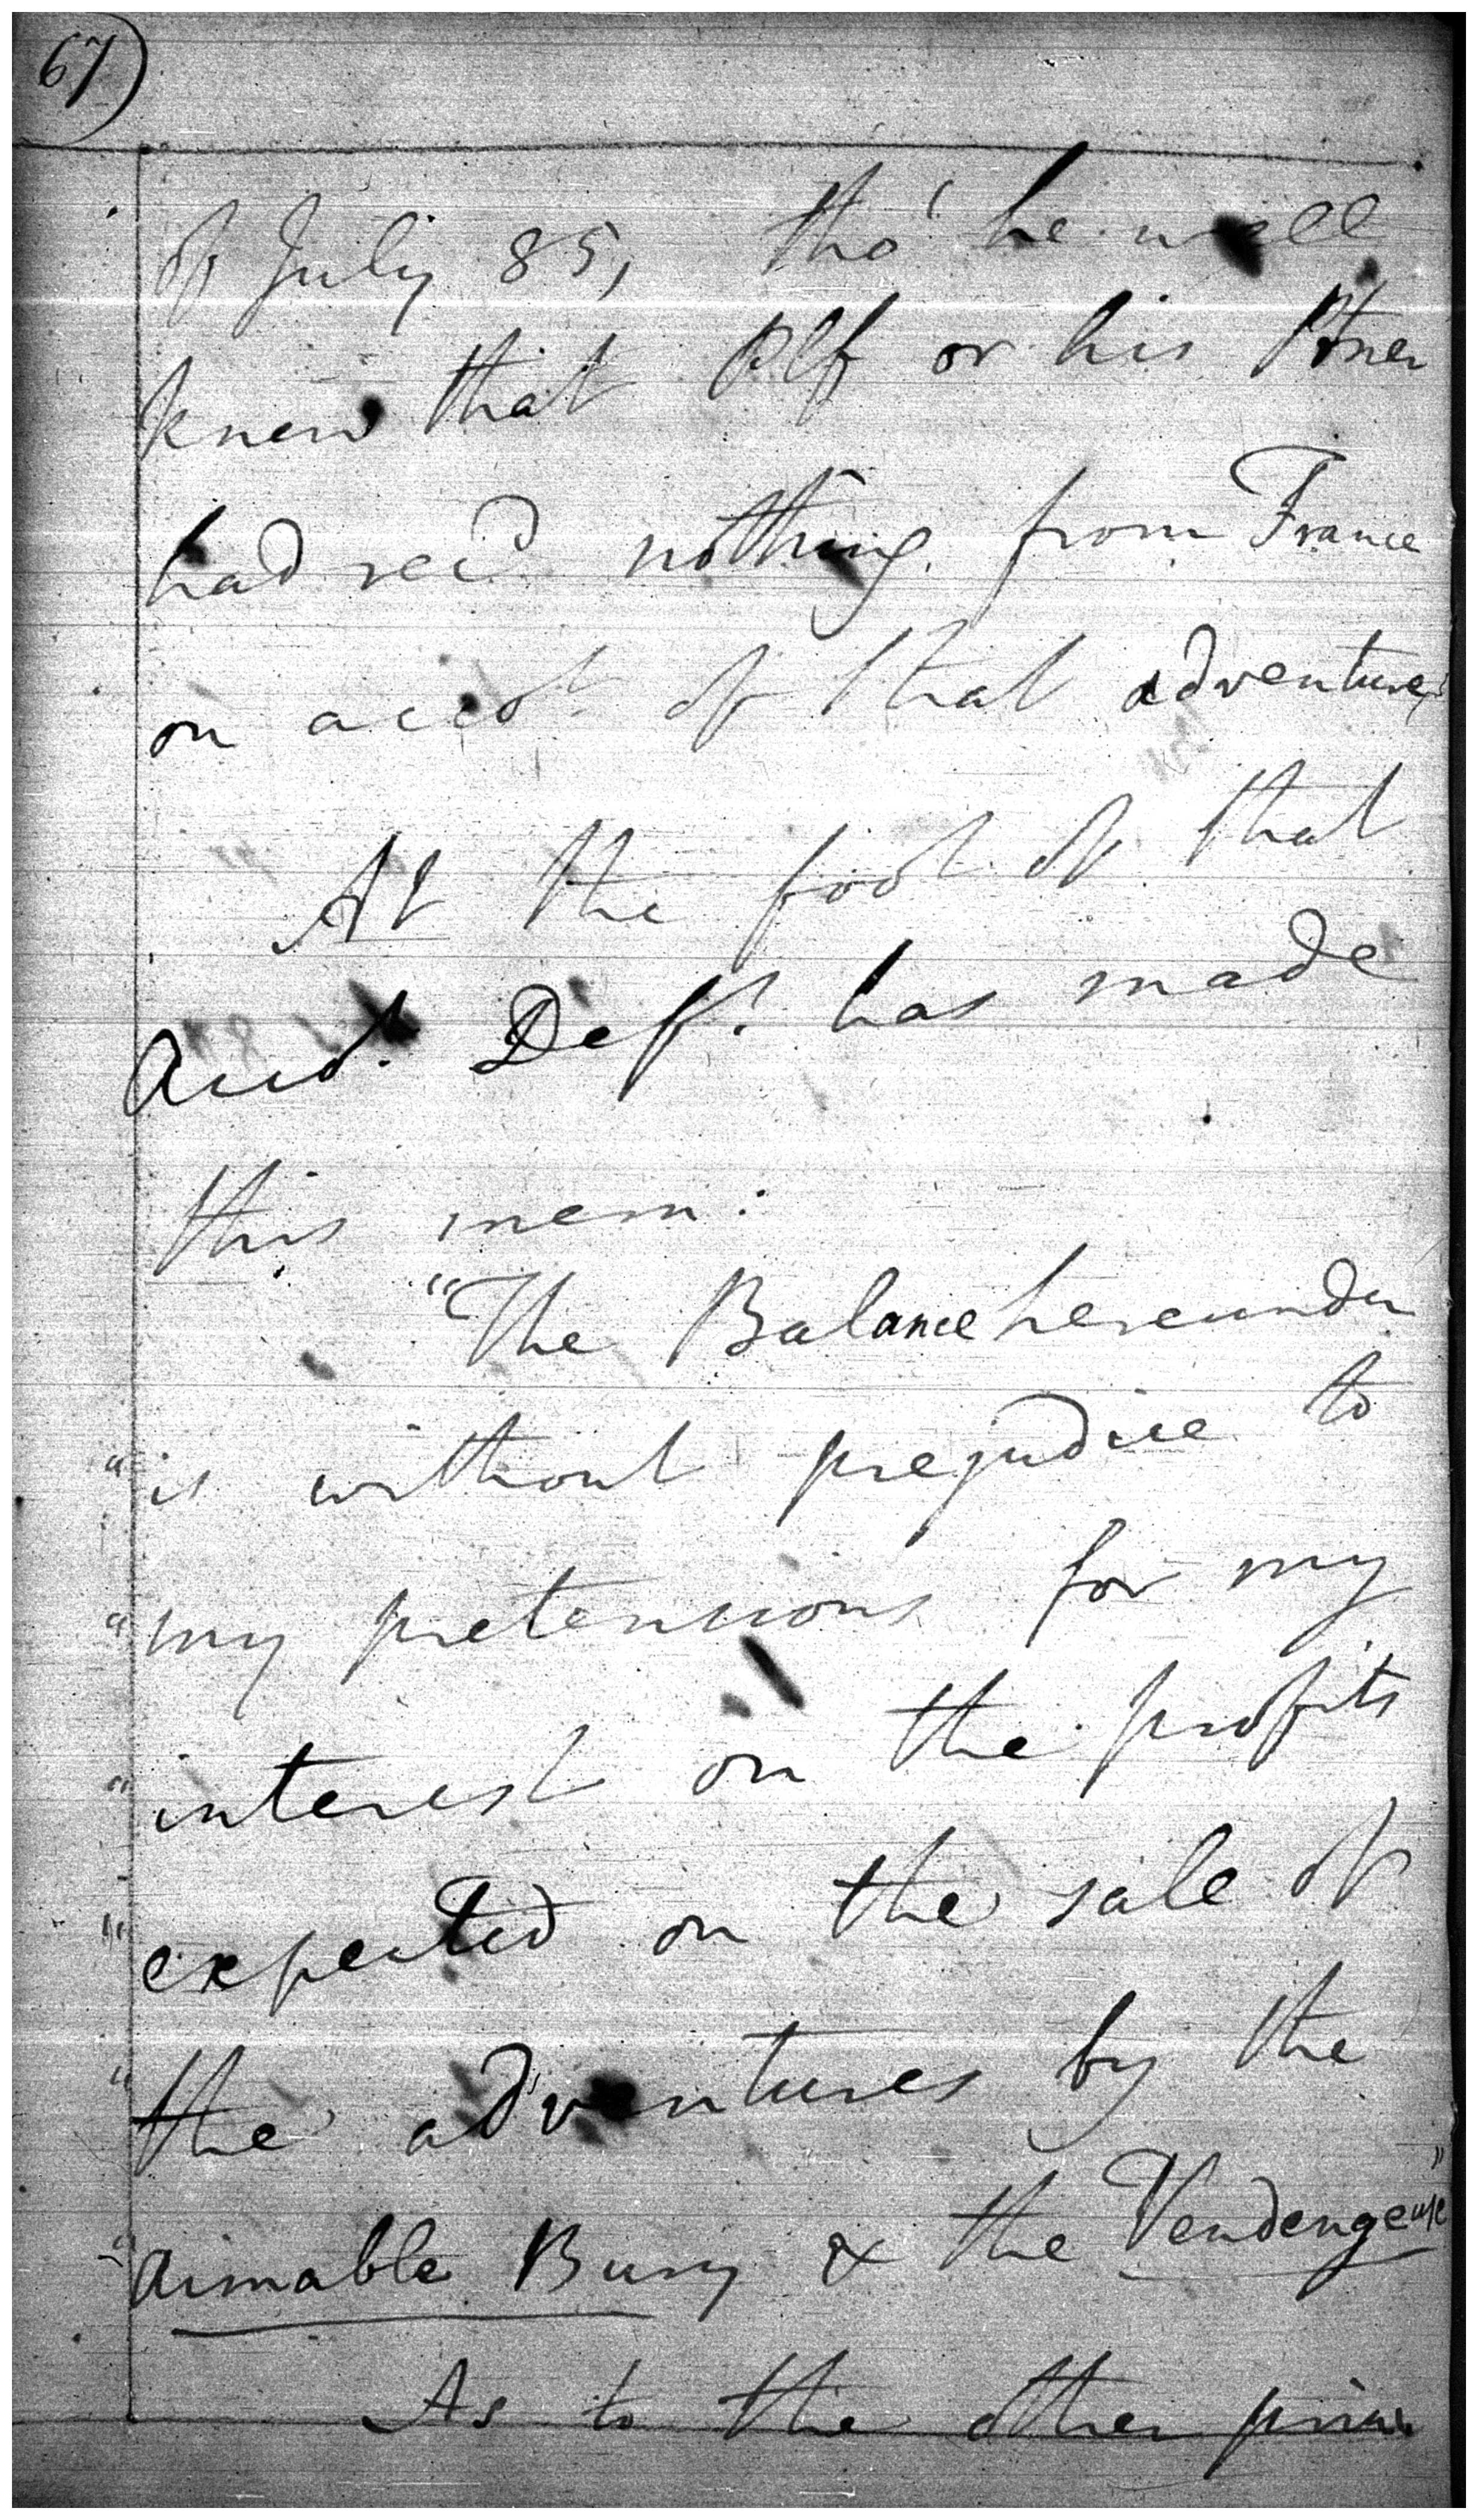 67)
of July 85, tho' he well
knew that Plf or his Ptner
had recd nothing from France
on accot of that adventure,
At the foot of that
Accot. Deft. has made
this mem:
"The Balance hereunder
"is without prejudice to
"my pretensions for my
"interest on the profits
"expected on the sale of
"the adventures by the
"Aimable Bury & the Vendengeuse"
As to the other